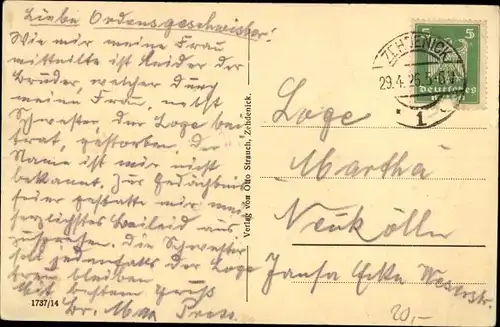 Liebe Ordensgeschwister!
Wie mir meine Frau
mitteilte ist leider der
Bruder, welcher durch
meine Frau, nebst
Schwester, der Loge bei-
trat, gestorben. Der
Name ist mir nicht
bekannt. Zur Gedächtnis
feier gestatte mir mein
herzlichstes Beileid aus
zusprechen. Die Schwester
soll jedenfalls der Loge
treu bleiben
Mit bestem Gruß
Br.
1737/14
Verlag von Otto Strauch, Zehdenick.
5 5
Deutsches
ZEHDENICK
29.4.26.5-6 N
* 1
Loge
Martha
Neukölln
Ecke Weserstr.
20,-